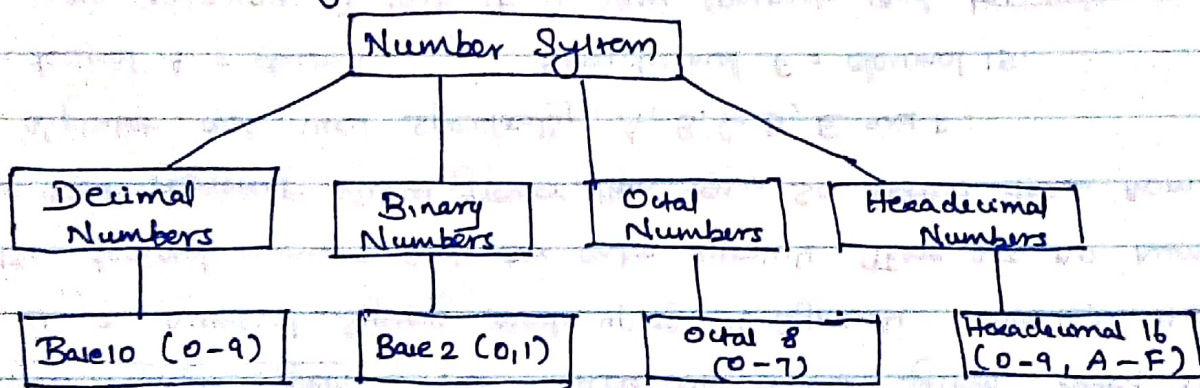 Number System
Decimal
Numbers
Binary
Numbers
Octal
Numbers
Hexadecimal
Numbers
Base 10 (0-9)
Base 2 (0,1)
Octal 8
(0-7)
Hexadecimal 16
(0-9, A-F)